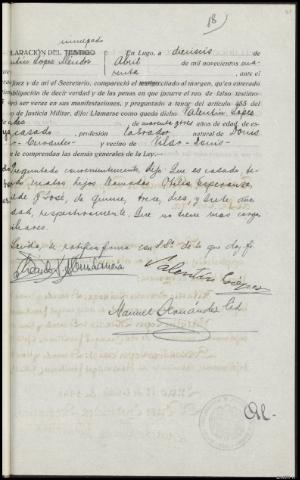 inculpado
DECLARACIÓN DEL TESTIGO
En Lugo, a dieciseis de
Valentin Lopez Mendez
Abril de mil novecientos cua-
renta, ante el
Juez y de mí el Secretario, compareció el testigo citado al margen, que enterado
obligación de decir verdad y de las penas en que incurre el reo de falso testimo-
ser veraz en sus manifestaciones, y preguntado a tenor del artículo 453 del
de Justicia Militar, dijo: Llamarse como queda dicho Valentin Lopez
de cuarenta y tres años de edad, de es-
casado, profesión labrador natural de Donis
Cervantes y vecino de Vilar-Donis
le comprenden las demás generales de la Ley.
Preguntado convenientemente, dijo: Que es casado
cuatro hijos llamados Otilia, Esperanza,
y José, de quince, trece, diez y siete años
edad, respectivamente. Que no tiene mas cargas
Leida, se ratifica y firma con S.Sª de lo que doy fé
Valentin López
Manuel Fernandez Cid